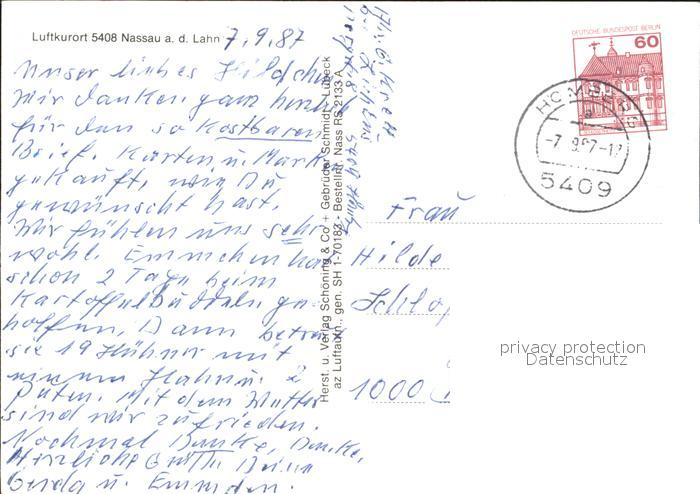 Luftkurort 5408 Nassau a. d. Lahn 7.9.87
Unser liebes Hildchen
Wir danken ganz herzl.
für den so kostbaren
Brief. Karten u. Marken
gekauft, wie Du
gewünscht hast.
Wir fühlen uns sehr
wohl. Emmchen hat
schon 2 Tage beim
Kartoffelbuddeln ge-
holfen. Dann betreu
sie 19 Hühner mit
einem Hahn u. 2
Puten. Mit dem Wetter
sind wir zufrieden.
Nochmal Danke, Danke,
Herzliche Grüße Deine
Gerda u. Emmchen.
Herst. u. Verlag Schöning & Co + Gebrüder Schmidt, Lübeck
az Luftaufn., gen. SH 1-70183 - Bestellnr. Nass RS 2133 A
5409
DEUTSCHE BUNDESPOST BERLIN
60
HOMBERG
-7.9.87-17
5409
Frau
Hilde
1000
privacy protection
Datenschutz